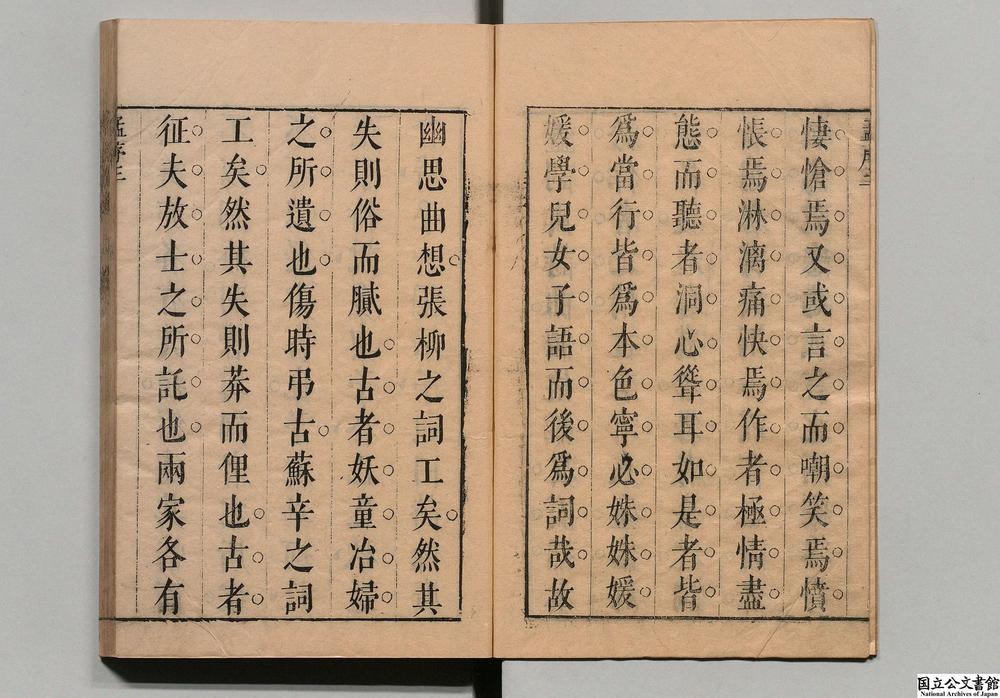 悽愴焉又或言之而嘲笑焉憤
悵焉淋漓痛快焉作者極情盡
態而聽者洞心聳耳如是者皆
爲當行皆爲本色寧必姝姝媛
媛學兒女子語而後爲詞哉故
幽思曲想張柳之詞工矣然其
失則俗而膩也古者妖童冶婦
之所遺也傷時弔古蘇辛之詞
工矣然其失則莽而俚也古者
征夫放士之所託也兩家各有
国立公文書館
National Archives of Japan